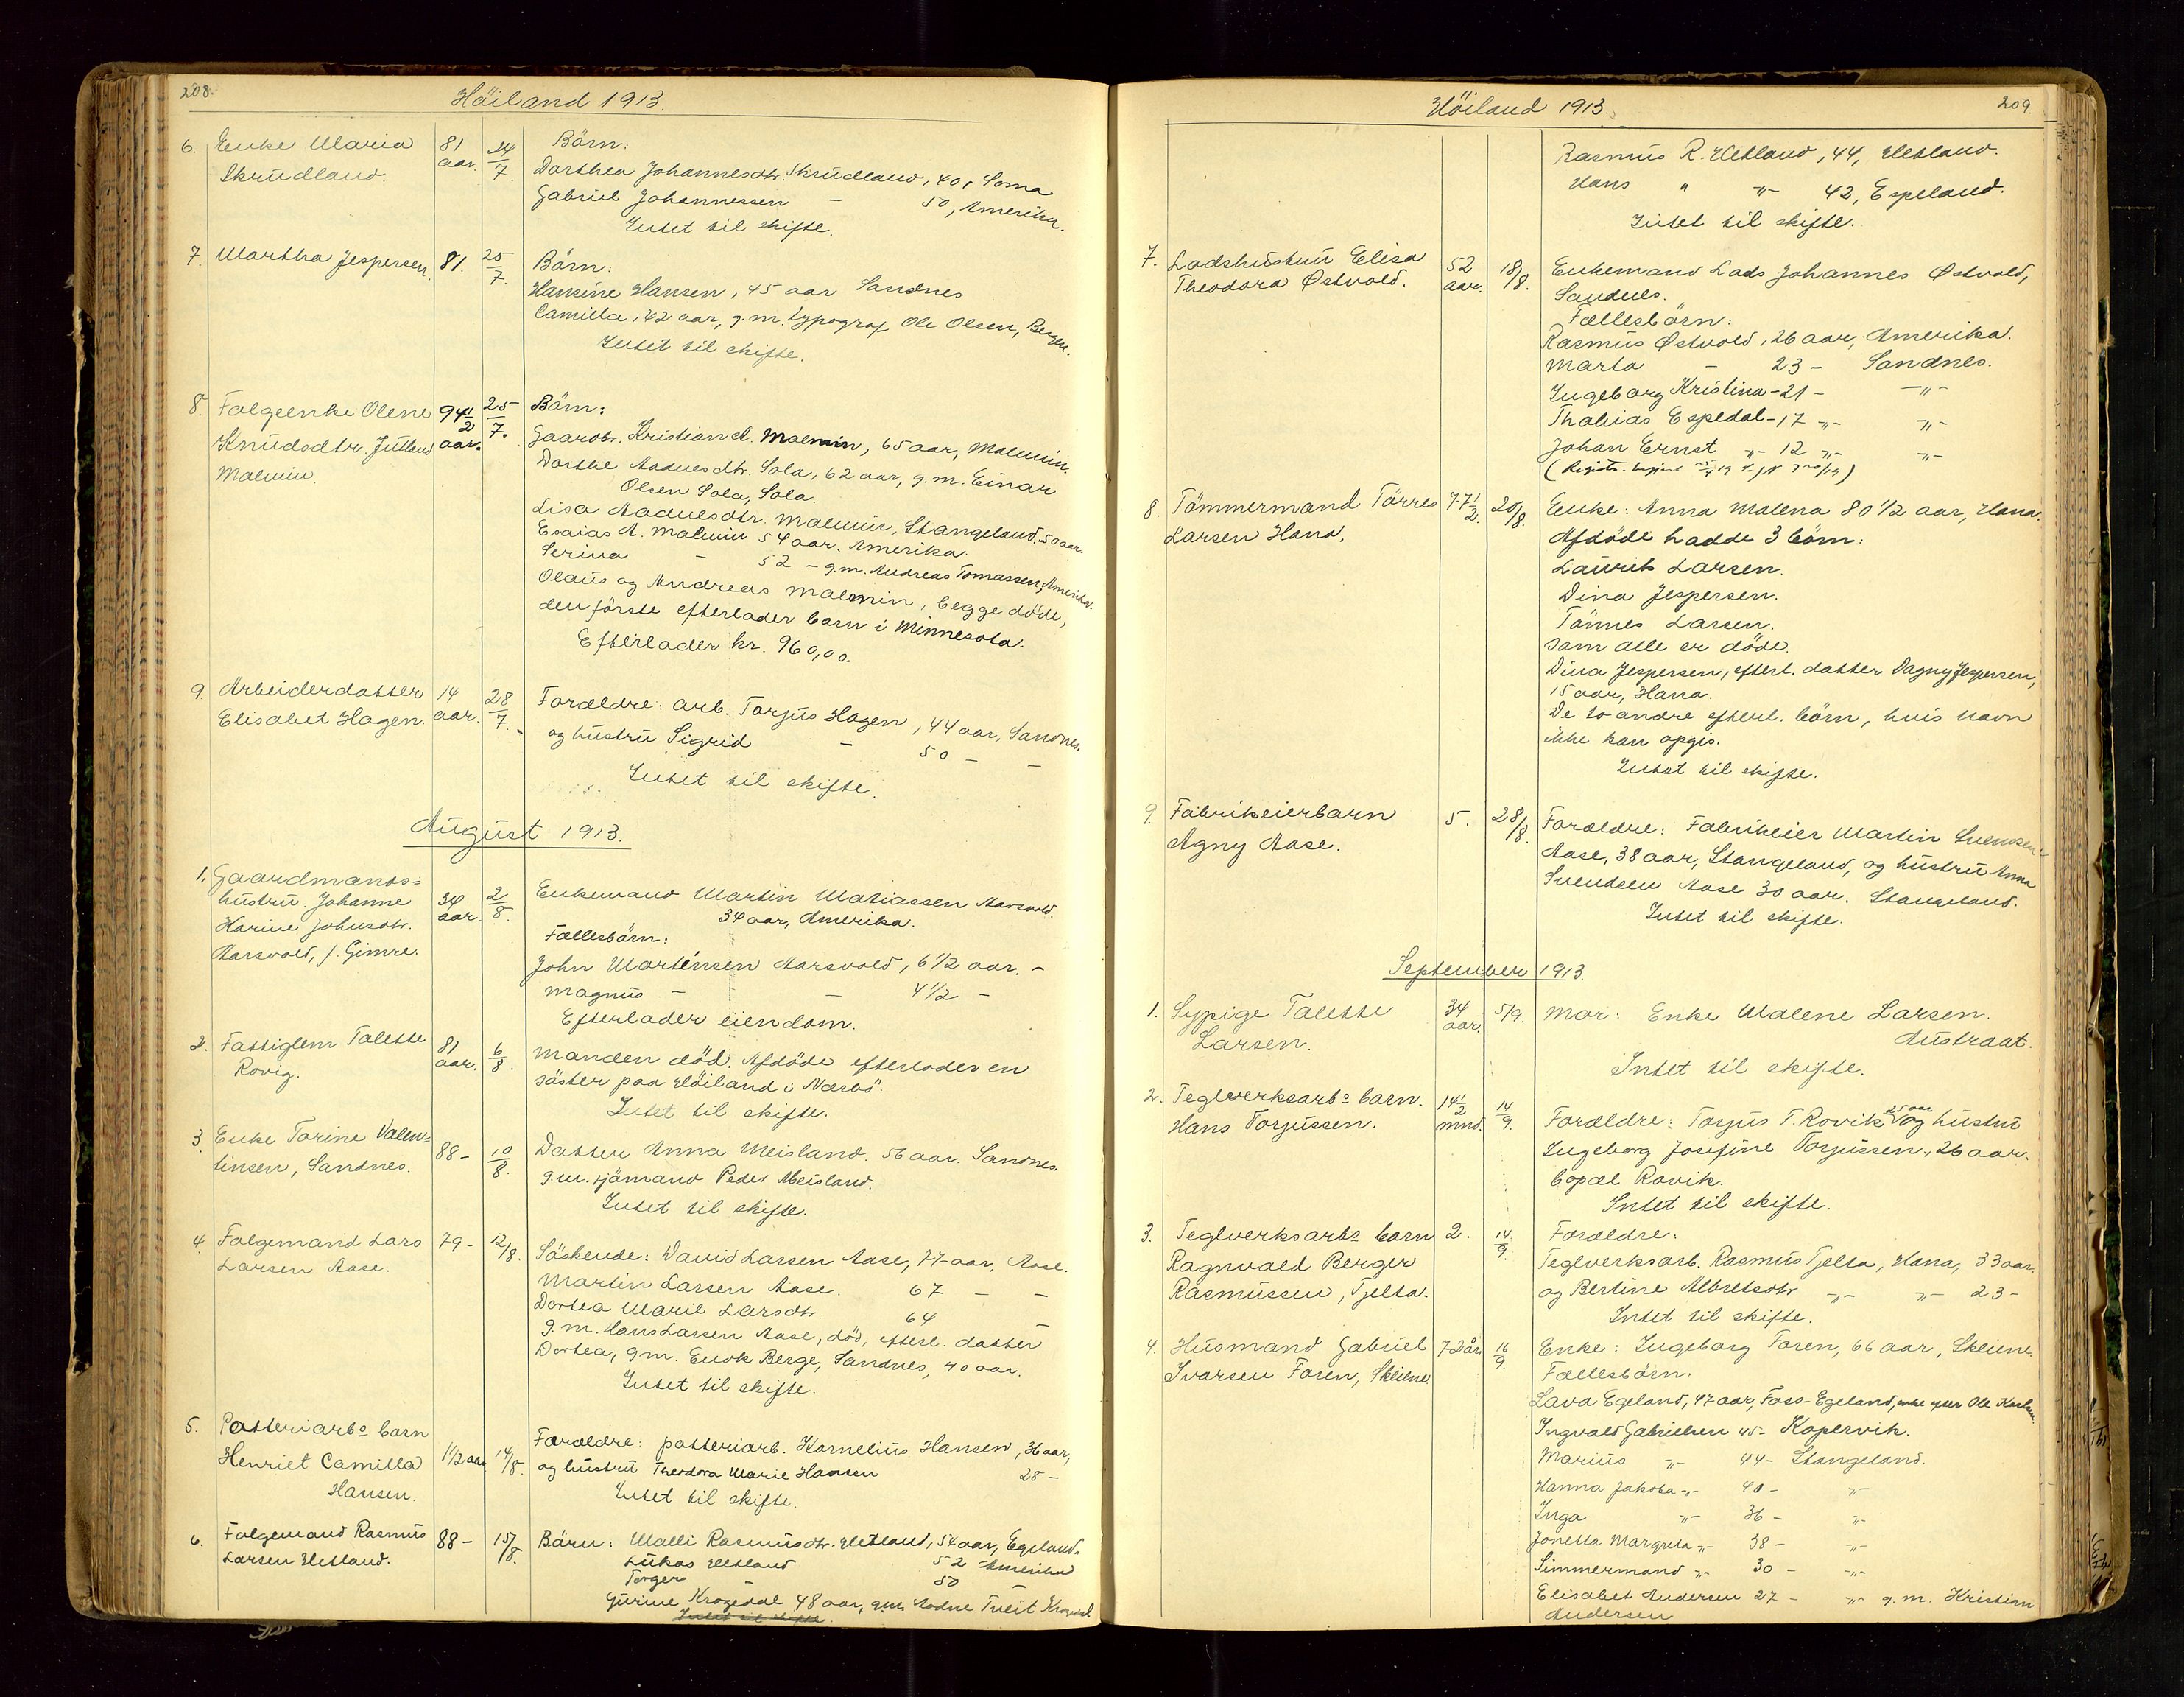 208.
Höiland 1913.
6. Enke Maria 81 24/7 Börn:
Skrudland. aar. Dorthea Johannesdtr. Skrudland, 40, Soma
Gabriel Johannessen - 50, Amerika.
Intet til skifte.
7. Martha Jespersen, 81. 25/7. Börn:
Hansine Hansen, 45 aar Sandnes
Camilla, 42 aar, g.m. typograf Ole Olsen, Bergen.
Intet til skifte.
8. Folgeenke Olene 94 1/2 25/7. Börn:
Knudsdtr. Jutland aar. Gaardbr. Kristian A. Malmin, 65 aar, Malmin.
Malmin. Dorthe Aadnesdtr. Sola, 62 aar, g.m. Einar
Olsen Sola, Sola.
Lisa Aadnesdtr. Malmin, Stangeland. 50 aar.
Esaias A. Malmin 54 aar. Amerika.
Serina - 52 - g.m. Andreas Tomassen, Amerika.
Olaus og Andreas Malmin, begge döde,
den förste efterlader barn i Minnesota.
Efterlader kr. 960,00.
9. Arbeiderdatter 14 28/7. Forældre: arb. Torjus Hagen, 44 aar, Sandnes.
Elisabet Hagen. aar. og hustru Sigrid - 50 - -
Intet til skifte.
August 1913.
1. Gaardmands=
hustru. Johanne 34 2/8. Enkemand Martin Matiassen Aarsvold.
Harine Johnsdtr. aar. 34 aar, Amerika.
Aarsvold, f. Gimre. Fællesbörn:
John Martensen Aarsvold, 6 1/2 aar. -
Magnus - - 4 1/2 -
Efterlader eiendom.
2. Fattiglem Talette 81 6/8. Manden död. Afdöde efterlader en
Rovig. aar. söster paa Höiland i Nærbö.
Intet til skifte.
3. Enke Torine Valen= 88 - 10/8. Datter Anna Meisland. 56 aar. Sandnes.
tinsen, Sandnes. g.m. sjömand Peder Meisland.
Intet til skifte.
4. Folgemand Lars 79 - 12/8. Söskende: David Larsen Aase, 77 aar, Aase.
Larsen Aase. Martin Larsen Aase. 67 - -
Dortea Marie Larsdtr. 64 -
g.m. Hans Larsen Aase, död, efterl. datter
Dortea, g.m. Enok Berge, Sandnes, 40 aar.
Intet til skifte.
5. Potteriarbs barn
Henriet Camilla 1 1/2 aar 14/8. Forældre: potteriarb. Kornelius Hansen, 36 aar,
Hansen. og hustru Theodora Marie Hansen 28 -
Intet til skifte.
6. Folgemand Rasmus 88 - 15/8. Börn: Malli Rasmusdtr. Hetland, 54 aar, Egeland.
Larsen Hetland. Lukas Hetland 52 - Amerika
Torger - 50 -
Gurine Krogedal 48 aar, g.m. Aadne Tveit Krogedal
Intet til skifte.
209.
Höiland 1913.
Rasmus R. Hetland, 44, Hetland.
Hans " -"- 42, Espeland.
Intet til skifte.
7. Lodshustru Elisa 52 18/8. Enkemand Lods Johannes Østvold,
Theodora Østvold. aar. Sandnes.
Fællesbörn:
Rasmus Østvold, 26 aar, Amerika.
Marta - 23 - Sandnes.
Ingeborg Kristina - 21 - -"-
Thobias Espedal - 17 -"- -"-
Johan Ernst -"- 12 -"- -"-
8. Tömmermand Törres 77 1/2. 20/8. Enke: Anna Malena 80 1/2 aar, Hana.
Larsen Hana. Afdöde hadde 3 börn:
Laurits Larsen.
Dina Jespersen.
Tönnes Larsen.
som alle er döde.
Dina Jespersen, efterl. datter Dagny Jespersen,
15 aar, Hana.
De to andre efterl. börn, hvis navn
ikke kan opgis.
Intet til skifte.
9. Fabrikeierbarn 5. 28/8. Forældre: Fabrikeier Martin Svendsen
Agny Aase. Aase, 38 aar, Stangeland, og hustru Anna
Svendsen Aase 30 aar. Stangeland.
Intet til skifte.
September 1913.
1. Sypige Talette 34 5/9. Mor: Enke Malene Larsen.
Larsen. aar. Austraat.
Intet til skifte.
2. Teglverksarbs barn. 14 1/2 14/9. Forældre: Torjus T. Rovik 25 aar og hustru
Hans Torjussen. mnd. Ingeborg Josefine Torjussen, 26 aar.
bopæl Rovik.
Intet til skifte.
3. Teglverksarbs barn 2. 14/9. Forældre:
Ragnvald Berger Teglverksarb. Rasmus Tjelta, Hana, 33 aar.
Rasmussen, Tjelta. og Bertine Albretsdtr -"- -"- 23 -
Intet til skifte.
4. Husmand Gabriel 72 år 16/9. Enke: Ingeborg Foren, 66 aar, Skeiene.
Ivarsen Foren, Skeiene Fællesbörn.
Lava Egeland, 47 aar, Foss-Egeland, enke efter Ole
Ingvald Gabrielsen 45 - Kopervik.
Marius -"- 44 - Stangeland.
Hanna Jakoba -"- 40 - -"-
Inga -"- 36 - -"-
Jonetta Margreta -"- 38 - -"-
Simmermand -"- 30 - -"-
Elisabet Andersen 27 - -"- g.m. Kristian
Andersen